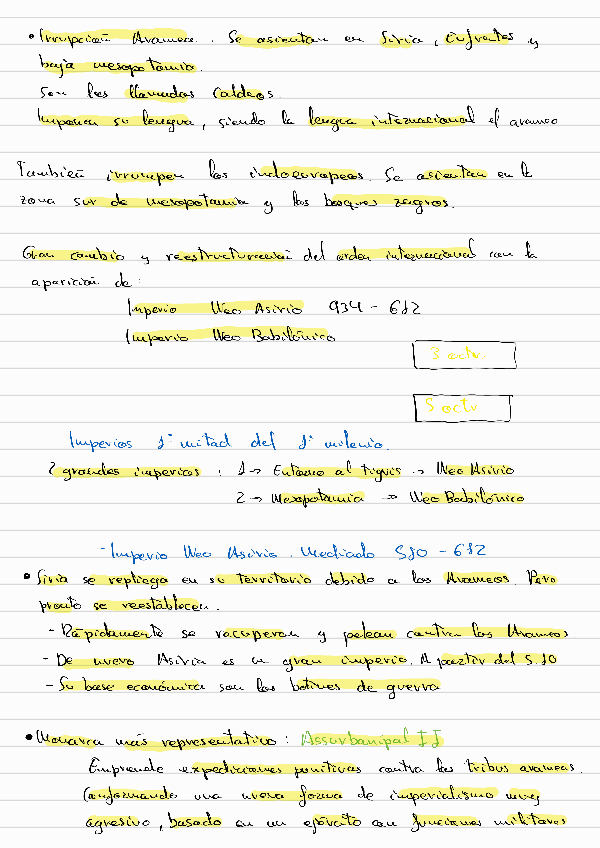 • Irrupción Aramea. Se asientan en Siria, Eufrates y
baja mesopotamia.
Son los llamados Caldeos.
Imponen su lengua, siendo la lengua internacional el arameo
También irrumpen los indoeuropeos. Se asientan en la
zona sur de mesopotamia y los bosques zagros.
Gran cambio y reestructuración del orden internacional con la
aparición de:
Imperio Neo Asirio 934 - 612
Imperio Neo Babilónico
3 octu.
5 octu
Imperios 1ª mitad del 1º milenio.
2 grandes imperios: 1 → Entorno al tigris → Neo Asirio
2 → Mesopotamia → Neo Babilónico
- Imperio Neo Asirio. Mediado S10 - 612
• Siria se repliega en su territorio debido a los Arameos. Pero
pronto se reestablecen.
- Rápidamente se recuperan y pelean contra los Arameos
- De nuevo Asiria es un gran imperio. A partir del S.10
- Su base económica son los botines de guerra
• Monarca más representativo: Assurbanipal II
Emprende expediciones punitivas contra las tribus arameas.
Conformando una nueva forma de imperialismo muy
agresivo, basado en un ejército con funciones militares